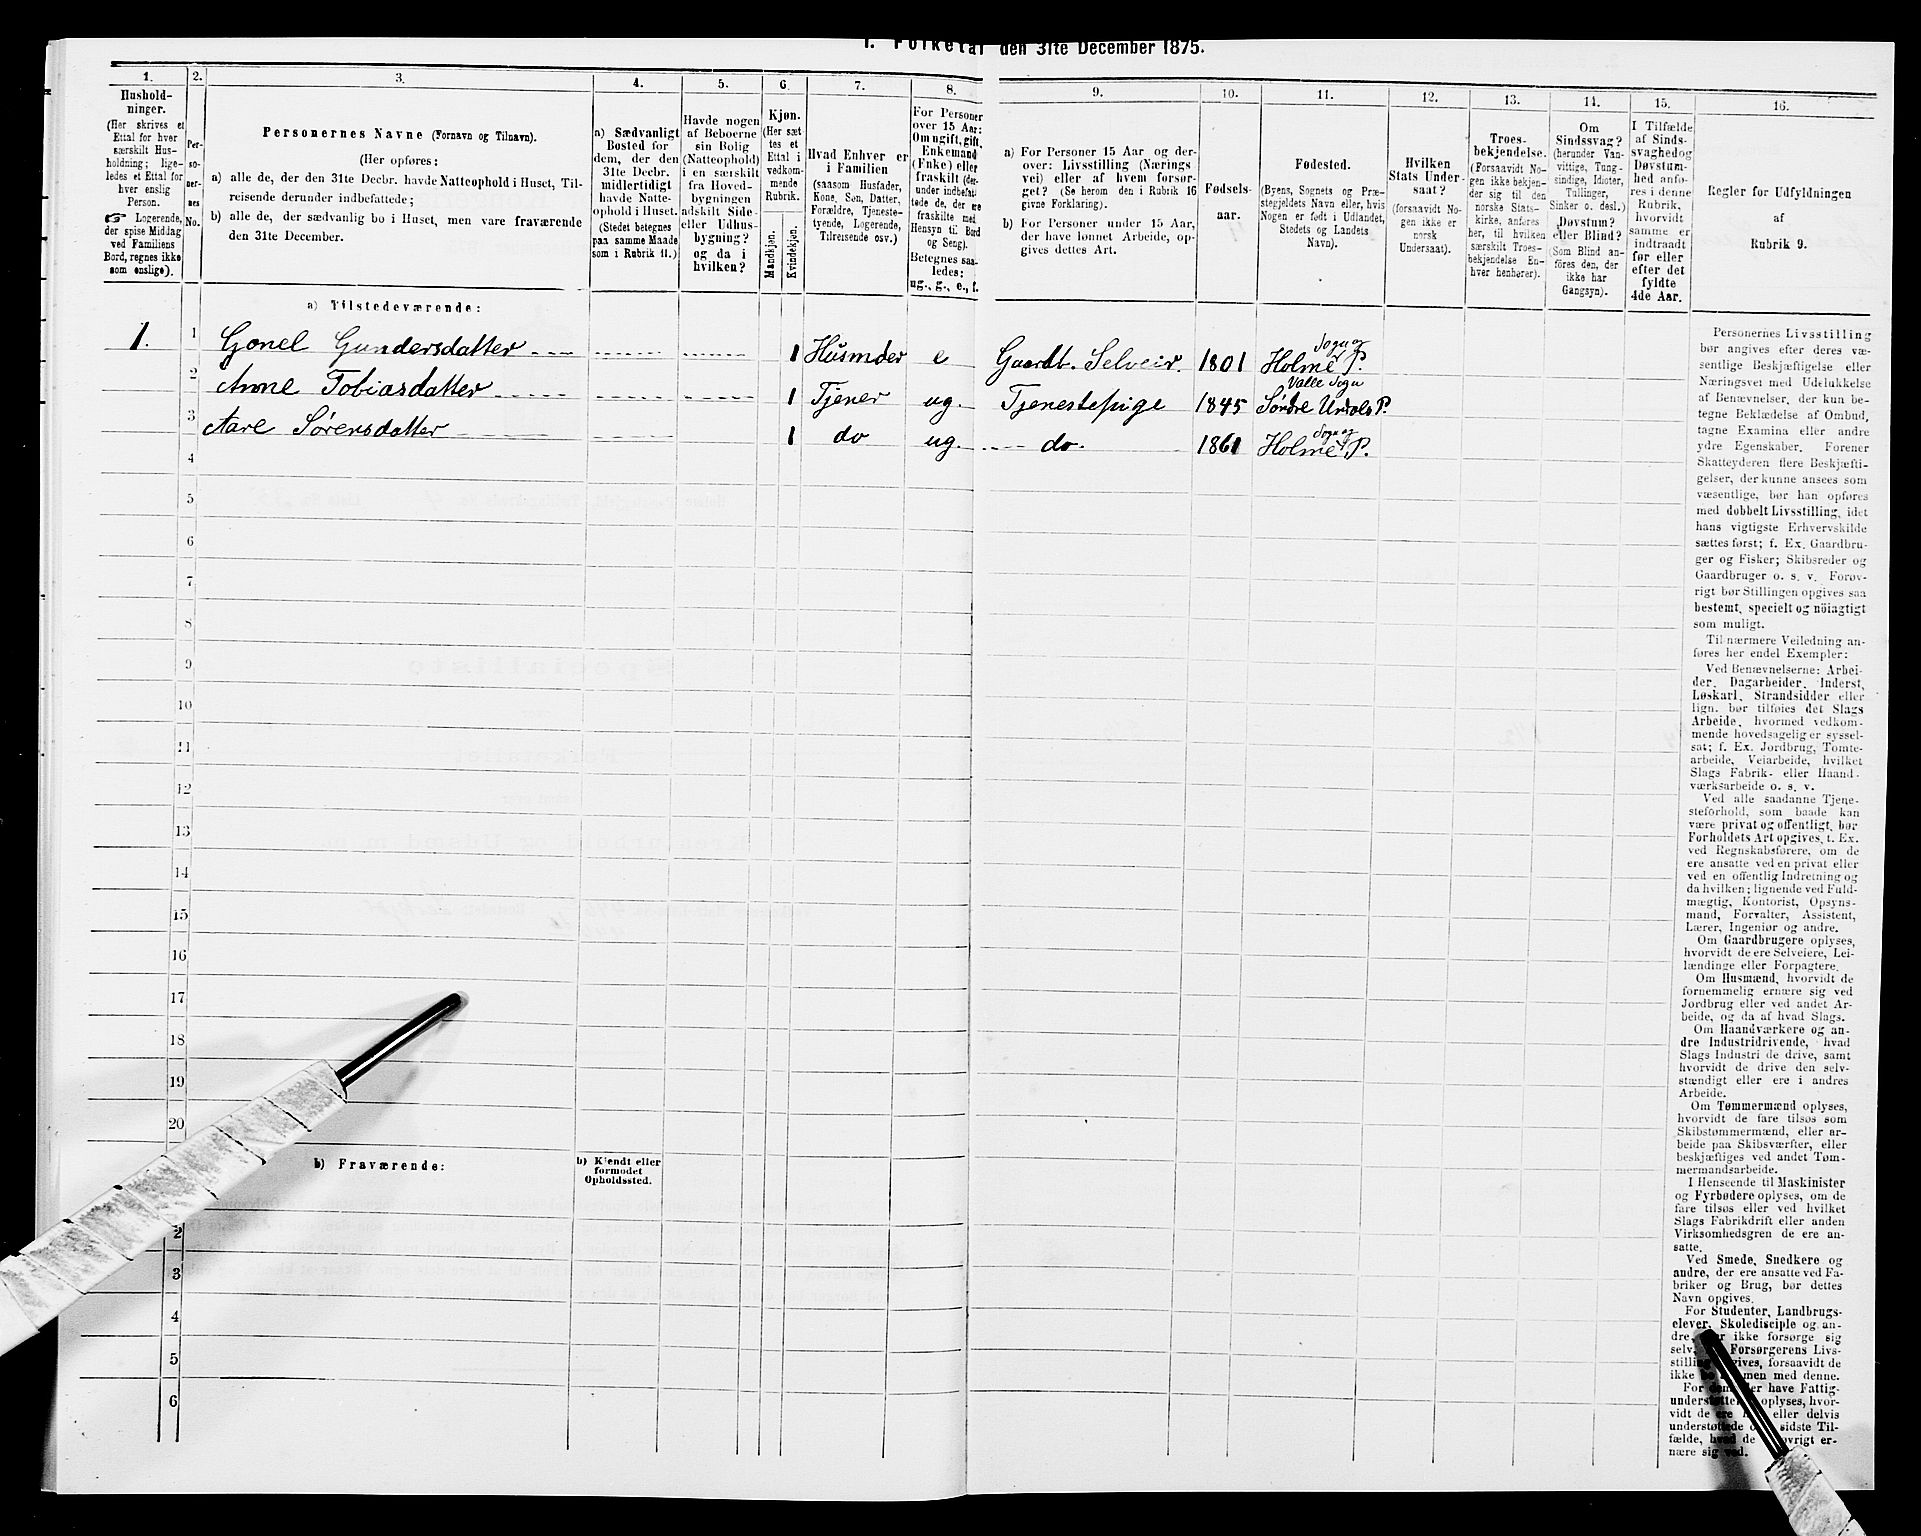 I. Folketal den 31te December 1875.
1.
Hushold-
ninger.
(Her skrives et
Ettal for hver
særskilt Hus-
holdning; lige-
ledes et Ettal for
hver enslig
Person.
☞ Logerende,
der spise Middag
ved Familiens
Bord, regnes ikke
som enslige).
2.
Per-
so-
ner-
nes
No.
3.
Personernes Navne (Fornavn og Tilnavn).
(Her opføres:
a) alle de, der den 31te Decbr. havde Natteophold i Huset, Til-
reisende derunder indbefattede;
b) alle de, der sædvanlig bo i Huset, men vare fraværende
den 31te December.
4.
a) Sædvanligt
Bosted for
dem, der den
31te Decbr.
midlertidigt
havde Natte-
ophold i Huset.
(Stedet betegnes
paa samme Maade
som i Rubrik 11.)
5.
Havde nogen
af Beboerne
sin Bolig
(Natteophold)
i en særskilt
fra Hoved-
bygningen
adskilt Side-
eller Udhus-
bygning?
og da i
hvilken?
6.
Kjøn.
(Her sæt
tes et
Ettal i
vedkom-
mende
Rubrik.
Mandkjøn.
Kvindekjøn.
7.
Hvad Enhver er
i Familien
(saasom Husfader,
Kone, Søn, Datter,
Forældre, Tjeneste-
tyende, Logerende,
Tilreisende osv.)
8.
For Personer
over 15 Aar:
Om ugift, gift,
Enkemand
(Enke) eller
fraskilt (der-
under indbefat-
tede de, der ere
fraskilte med
Hensyn til Bord
og Seng).
Betegnes saa-
ledes:
ug., g., e., f.
9.
a) For Personer 15 Aar og der-
over: Livsstilling (Nærings
vei) eller af hvem forsør-
get? (Se herom den i Rubrik 16
givne Forklaring).
b) For Personer under 15 Aar,
der have lønnet Arbeide, op-
gives dettes Art.
10.
Fødsels-
aar.
11.
Fødested.
(Byens, Sognets og Præ-
stegjeldets Navn eller, hvis
Nogen er født i Udlandet,
Stedets og Landets
Navn).
12.
Hvilken
Stats Under-
saat?
(forsaavidt No-
gen ikke er
norsk
Undersaat).
13.
Troes-
bekjendelse.
(Forsaavidt No-
gen ikke bekjen-
der sig til den
norske Stats-
kirke, anføres
her, til hvilken
særskilt Troes-
bekjendelse En-
hver henhører).
14.
Om
Sindssvag?
(herunder Van-
vittige, Tung-
sindige, Idioter,
Tullinger,
Sinker o. desl.)
Døvstum?
eller Blind?
(Som Blind an-
føres den, der
ikke har
Gangsyn).
15.
I Tilfælde
af Sinds-
svaghed og
Døvstum-
hed anfø-
res i denne
Rubrik,
hvorvidt
samme er
indtraadt
før eller
efter det
fyldte
4de Aar.
16.
Regler for Udfyldningen
af
Rubrik 9.
a) Tilstedeværende:
1. 1 Gonel Gundersdatter 1 Husmder e Gaardb. Selveier. 1801 Holme Sogn og P.
2 Anne Tobiasdatter 1 Tjener ug. Tjenestepige 1845 Valle Sogn Søndre Undals P.
3 Aare Sørensdatter 1 do ug. do. 1861 Holme Sogn og P.
4
5
6
7
8
9
10
11
12
13
14
15
16
17
18
19
20
b) Fraværende:
b) Kjendt eller
formodet
Opholdssted.
2
3
4
5
6
Personernes Livsstilling
bør angives efter deres væ-
sentlige Beskjæftigelse eller
Næringsvei med Udelukkelse
af Benævnelser, der kun be-
tegne Beklædelse af Ombud,
tagne Examina eller andre
ydre Egenskaber. Forener
Skatteyderen flere Beskjæfti-
gelser, der kunne ansees som
væsentlige, bør han opføres
med dobbelt Livsstilling, idet
hans vigtigste Erhvervskilde
sættes først; f. Ex. Gaardbru-
ger og Fisker; Skibsreder og
Gaardbruger o. s. v. Forøv-
rigt bør Stillingen opgives saa
bestemt, specielt og nöiagtigt
som muligt.
Til nærmere Veiledning an-
føres her endel Exempler:
Ved Benævnelserne: Arbei-
der, Dagarbeider, Inderst,
Løskarl, Strandsidder eller
lign. bør tilføies det Slags
Arbeide, hvormed vedkom-
mende hovedsagelig er syssel-
sat; f. Ex. Jordbrug, Tomte-
arbeide, Veiarbeide, hvilket
Slags Fabrik- eller Haand-
værksarbeide o. s. v.
Ved alle saadanne Tjene-
steforhold, som baade kan
være privat og offentligt, bør
Forholdets Art opgives, t. Ex.
ved Regnskabsførere, om de
ere ansatte ved en privat eller
ved en offentlig Indretning og
da hvilken; lignende ved Fuld-
mægtig, Kontorist, Opsyns-
mand, Forvalter, Assistent,
Lærer, Ingeniør og andre.
Om Gaardbrugere oplyses,
hvorvidt de ere Selveiere, Lei-
lændinge eller Forpagtere.
Om Husmænd, hvorvidt de
fornemmelig ernære sig ved
Jordbrug eller ved andet Ar-
beide, og da af hvad Slags.
Om Haandværkere og an-
dre Industridrivende, hvad
Slags Industri de drive, samt
hvorvidt de drive den selv-
stændigt eller ere i andres
Arbeide.
Om Tømmermænd oplyses,
hvorvidt de fare tilsøs som
Skibstømmermænd, eller ar-
beide paa Skibsværfter, eller
beskjæftiges ved andet Tøm-
mermandsarbeide.
I Henseende til Maskinister
og Fyrbødere oplyses, om de
fare tilsøs eller ved hvilket
Slags Fabrikdrift eller anden
Virksomhedsgren de ere an-
satte.
Ved Smede, Snedkere og
andre, der ere ansatte ved Fa-
briker og Brug, bør dettes
Navn opgives.
For Studenter, Landbrugs-
elever, Skoledisciple og an-
dre, ikke forsørge sig
selv, Forsørgerens Livs-
forsaavidt de
ikke men med denne.
For have Fattig-
oplyses, hvor-
vidt de ere eller delvis
sidste Til-
fælde, hvad de øvrigt er-
nære sig ved.